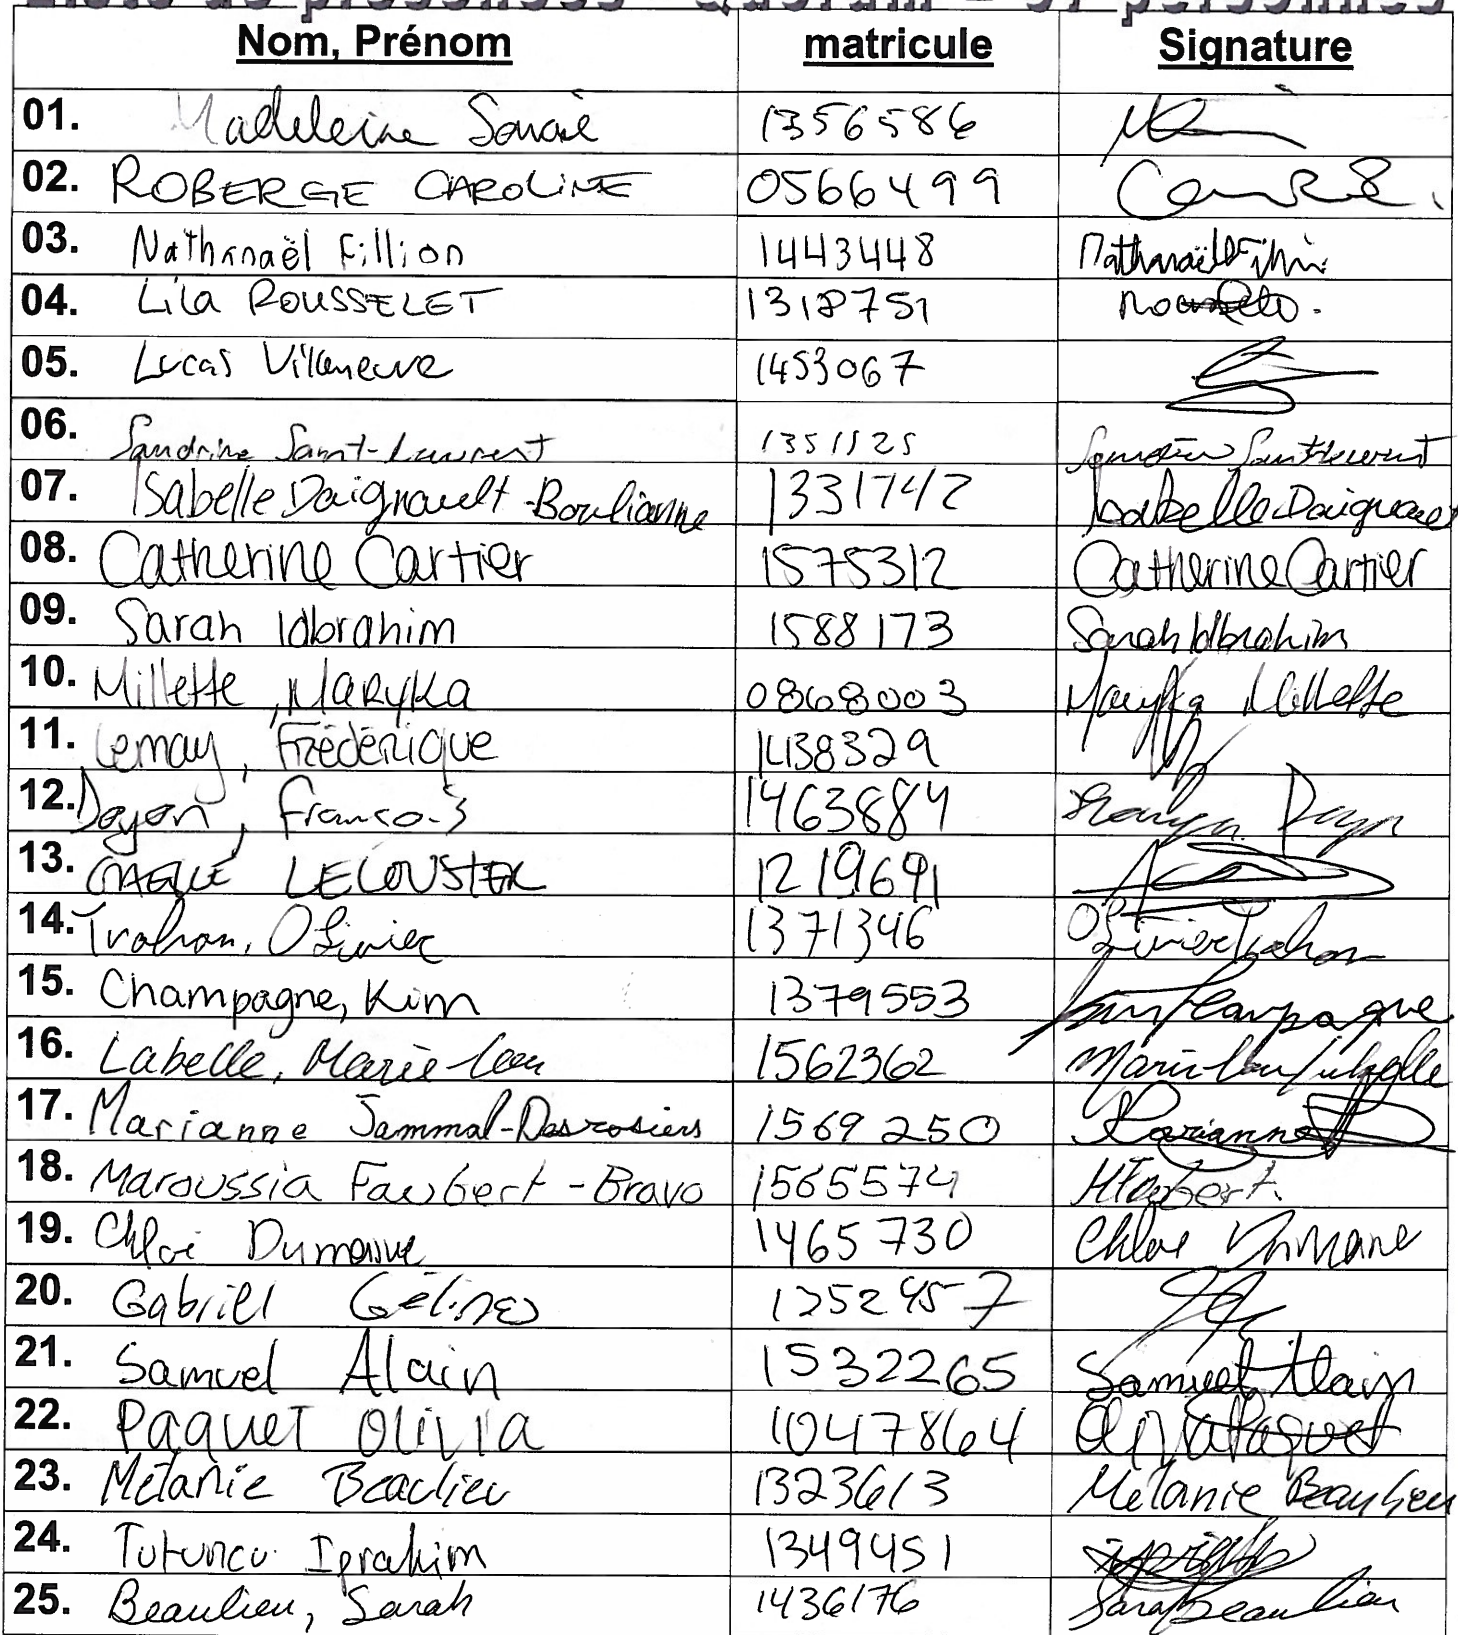 Liste de présences Quorum - 57 personnes
Nom, Prénom matricule Signature
01. Madeleine Sauvé 1356586
02. ROBERGE CAROLINE 0566499
03. Nathanaël Fillion 1443448 Nathanaël Fillion
04. Lila ROUSSELET 1318751
05. Lucas Villeneuve 1453067
06. Sandrine Saint-Laurent 1351125 Sandrine Saint-Laurent
07. Isabelle Daignault-Boulianne 1331742 Isabelle Daignault
08. Catherine Cartier 1575312 Catherine Cartier
09. Sarah Idbrahim 1588173 Sarah Idbrahim
10. Millette, MARYKA 0868003 Maryka Millette
11. Lemay, Frédérique 1438329
12. Doyon, François 1463884 Doyon
13. GAELLE LECOUSTER 1219691
14. Trahan, Olivier 1371346 Olivier Trahan
15. Champagne, Kim 1379553 Kim Champagne
16. Labelle, Marie-Lou 1562362 Marie-Lou Labelle
17. Marianne Jammal-Desrosiers 1569250 Marianne
18. Maroussia Faubert-Bravo 1565574 MFaubert.
19. Chloé Dumaine 1465730 Chloé Dumaine
20. Gabriel Gélines 1252957
21. Samuel Alain 1532265 Samuel Alain
22. Paquet Olivia 1047864 Olivia Paquet
23. Mélanie Beaulieu 1323613 Mélanie Beaulieu
24. Tutuncu Iprahim 1349451
25. Beaulieu, Sarah 1436176 Sarah Beaulieu